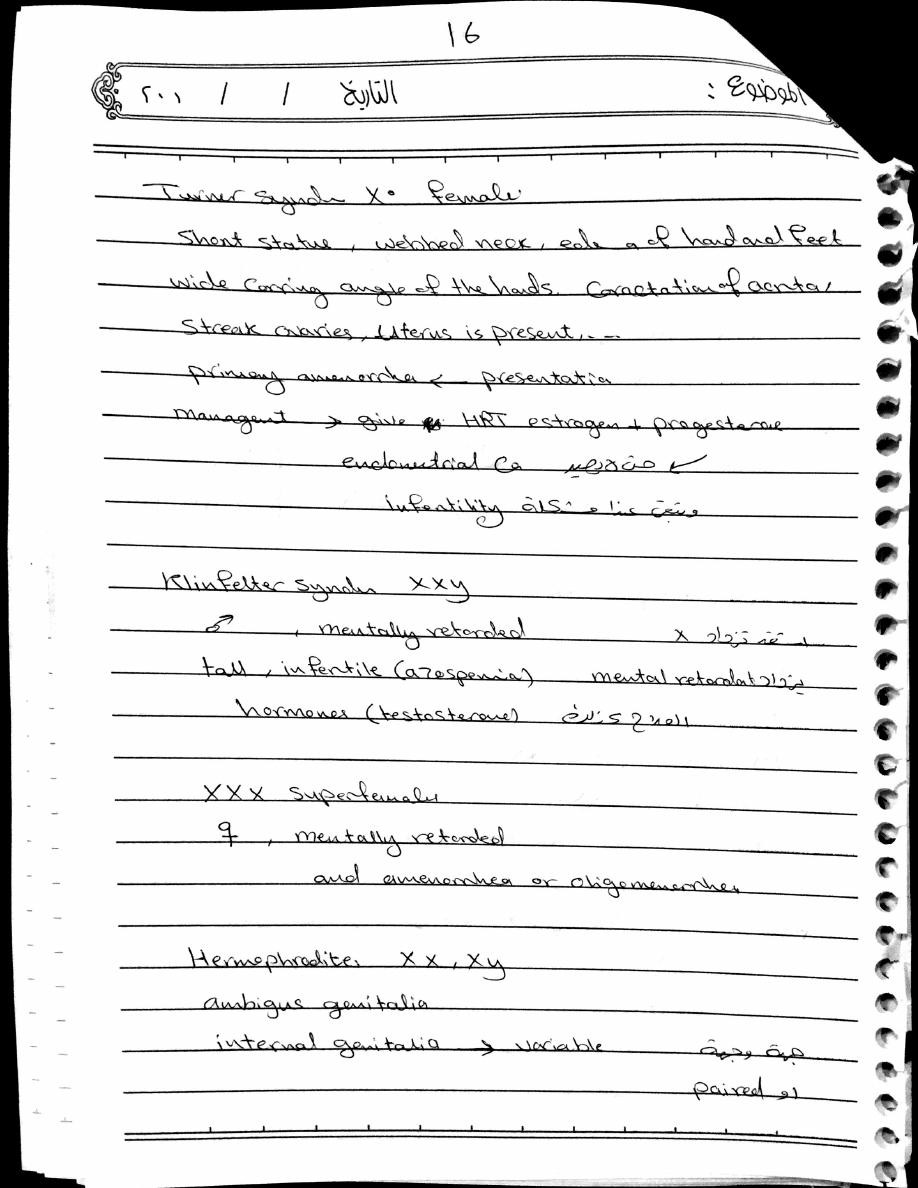 16
الموضوع : التاريخ / / ٢٠١
Turner syndr X° female
Short statue, webbed neck, of hand and feet
wide carring angle of the hands. Coractation of aorta,
Streak ovaries, Uterus is present, --
primary amenorrhea ← presentatio
managent → give HRT estrogen + progesterone
endometrial Ca ↙
infertility مشكلة
Klinfelter syndr XXY
♂, mentally retarded X تزداد
tall, infertile (azospemia) يزداد mental retardat
hormones (testosterone) العلاج
XXX superfemale
♀, mentally retarded
and amenorrhea or oligomenorrhea
Hermephrodite: XX, XY
ambigus genitalia
internal genitalia → variable جهة وجهة
او paired